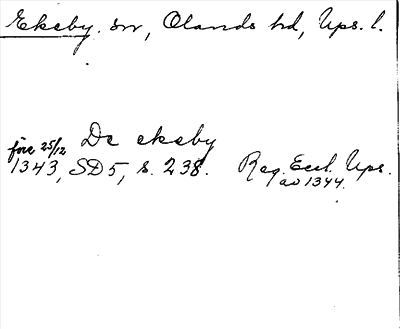 Ekeby. sn, Olands hd, Ups. l.
De ekeby
före 25/12
1343, SD5, s. 238. Reg. Eccl. Ups.
av 1344.